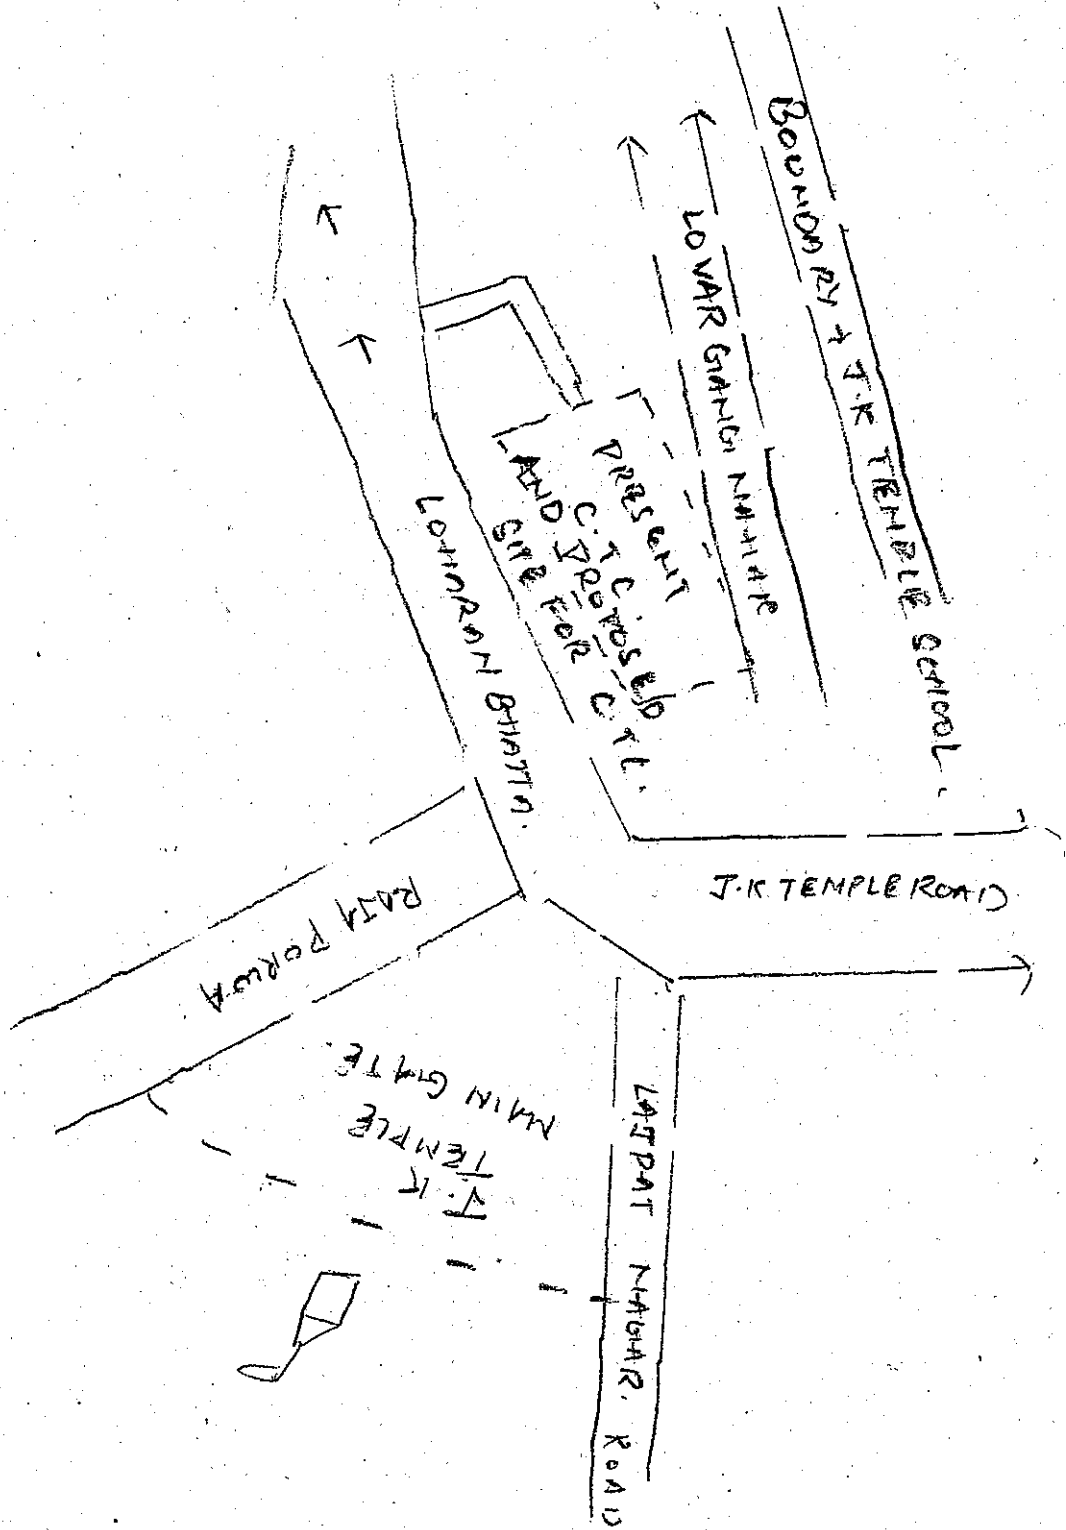 BOUNDARY + J.K TEMPLE SCHOOL.
LOVAR GANGI NAHAR
PRESENT
C.T.C.
LAND PROPOSED
SITE FOR C T C.
LOHARAN BHATTA.
J.K TEMPLE ROAD
RAJA PORWA
MAIN GATE.
J.K
TEMPLE
LAJPAT NAGAR. ROAD